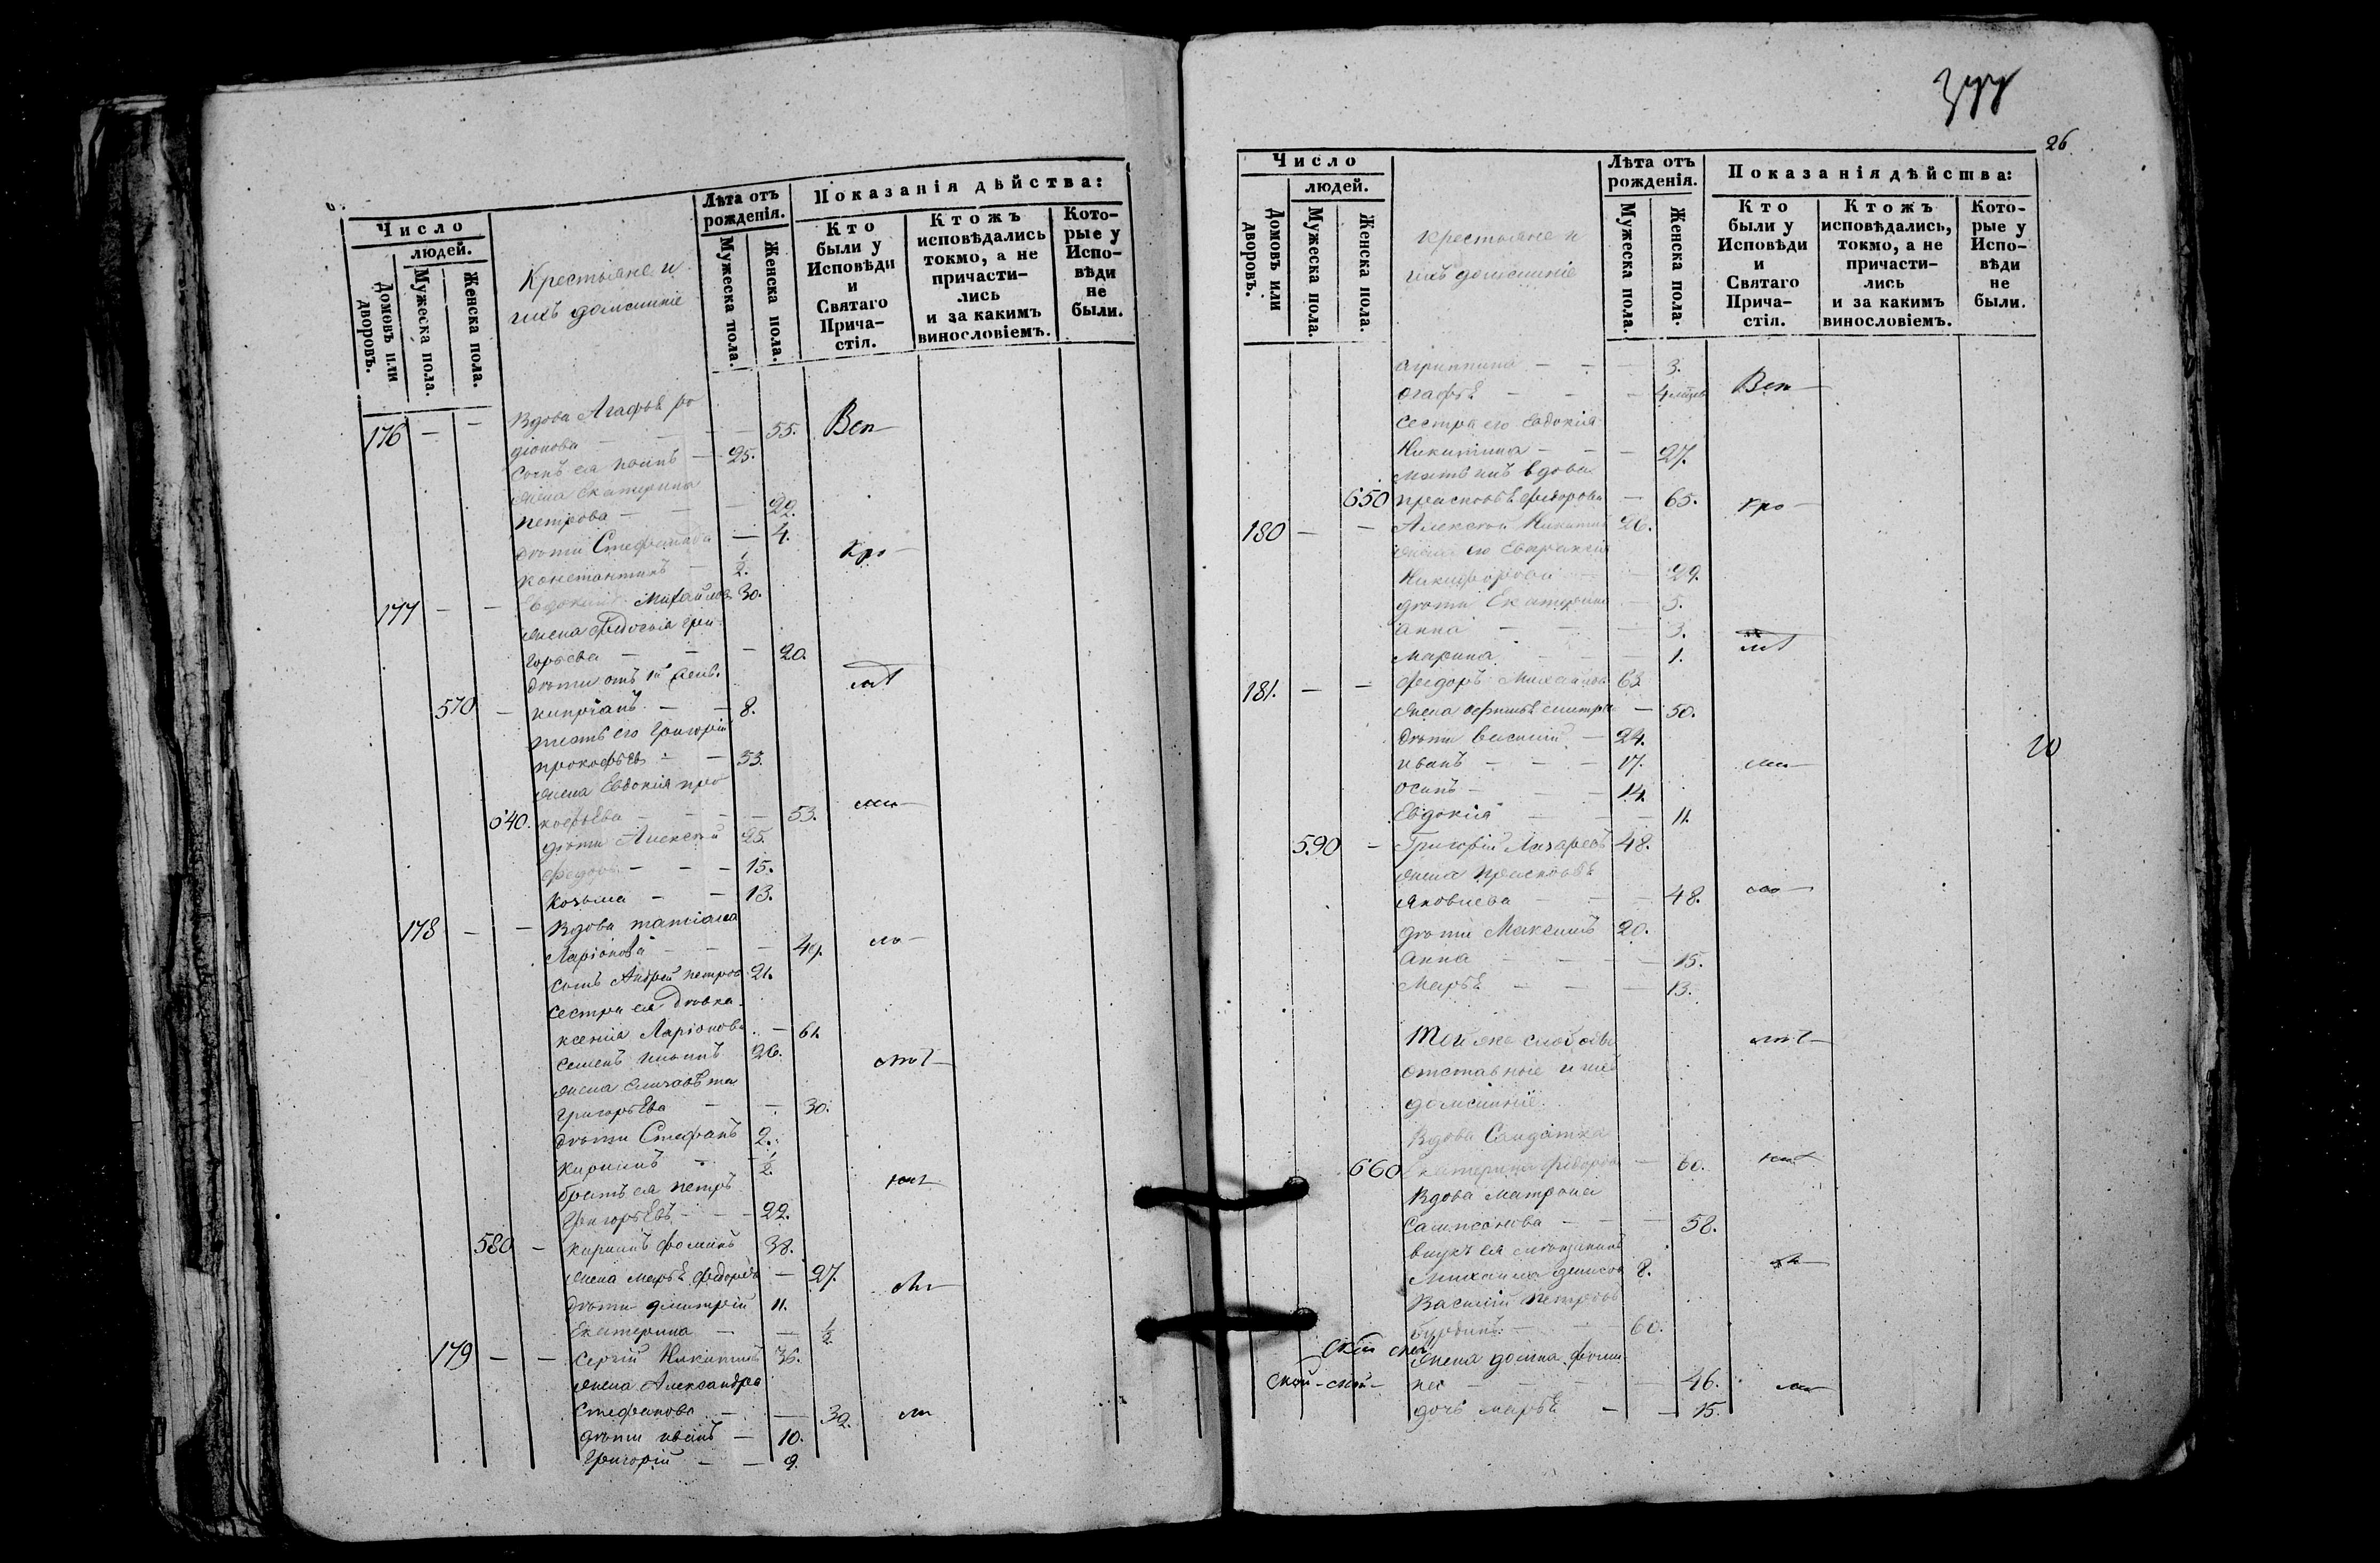 Число
людей.
Домовъ или дворовъ.
Мужеска пола.
Женска пола.
Крестьяне и
ихъ домашніе
Лѣта отъ
рожденія.
Мужеска пола.
Женска пола.
Показанія дѣйства:
Кто
были у
Исповѣди
и
Святаго
Прича-
стія.
Ктожъ
исповѣдались
токмо, а не
причасти-
лись
и за какимъ
винословіемъ.
Кото-
рые у
Испо-
вѣди
не
были.
176 — — Вдова Агафья Ро
діонова — — 55. Вси
Сынъ ея — 25.
жена Екатерина
Петрова — — 22.
дѣти Стефанида — 4.
Константинъ — 1/2.
177 — — Евдокимъ Михайловъ 30.
жена Федосья Гри
горьева — — — 20.
дѣти отъ 1й жены
570 — Кипріанъ — — 8.
тесть его Григорій
Прокофьевъ — — 53.
жена Евдокія Про
640. кофьева — — — 53.
дѣти Алексѣй 25.
Федоръ — — — 15.
Козьма — — 13.
178 — — Вдова Татіана
Ларіонова — — — 49.
Сынъ Андрей Петровъ 21.
Сестра ея дѣвка
Ксенія Ларіонова — 61.
Семенъ 26.
жена Елизавѣта
Григорьева — — 30.
дѣти Стефанъ 2.
Кирилъ — — 1/2.
братъ ея Петръ
Григорьевъ — — 22.
580 — Кирилъ Фоминъ 38.
жена Марья Федорова — 27.
дѣти Дмитрій 11.
Екатерина — — 1/2
179 — — Сергій Никитинъ 36.
жена Александра
Стефанова — — 32.
дѣти Иванъ — 10.
Григорій — — 9.
377
26
Число
людей.
Домовъ или дворовъ.
Мужеска пола.
Женска пола.
Крестьяне и
ихъ домашніе
Лѣта отъ
рожденія.
Мужеска пола.
Женска пола.
Показанія дѣйства:
Кто
были у
Исповѣди
и
Святаго
Прича-
стія.
Ктожъ
исповѣдались,
токмо, а не
причасти-
лись
и за какимъ
винословіемъ.
Кото-
рые у
Испо-
вѣди
не
были.
Агриппина — — — 3.
Агафья — — — 4 Вси
Сестра его Евдокія
Никитина — — — 27.
мать ихъ вдова
650 Прасковья Федорова — 65.
180 — — Алексѣй Никитинъ 26.
жена его Евпраксія
Никифорова — — 29.
дѣти Екатерина — 5.
Анна — — — 3.
Марина — — — 1.
181. — — Федоръ Михайловъ 63
жена — 50.
дѣти Василій — 24.
Иванъ — — — 17.
Осипъ — — — 14.
Евдокія — — — 11.
590 — Григорій Лазаревъ 48.
жена Прасковья
Яковлева — — — 48.
дѣти Максимъ 20.
Анна — — — — 15.
Марья — — — 13.
Той же слободы
отставные и ихъ
домашніе.
Вдова Солдатка
660 Екатерина Федорова — 60.
Вдова Матрона
Сампсонова — — — 58.
внукъ ея
Михаила Денисовъ 8.
Василій Петровъ
60.
жена Домна Фоми
на — — — — 46.
дочь Марья — — 15.